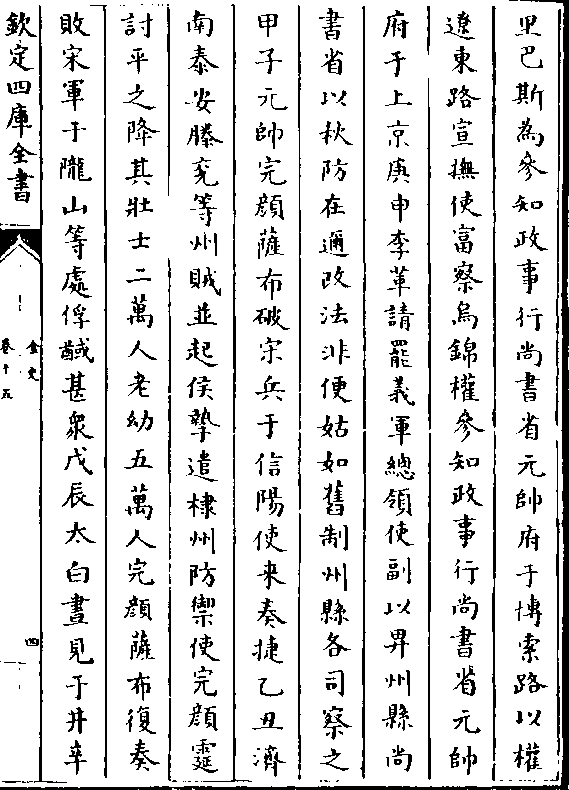 里巴斯為參知政事行尚書省元帥府于博索路以權
遼東路宣撫使富察烏錦權參知政事行尚書省元帥
府于上京庚申李革請罷義軍總領使副以畀州縣尚
書省以秋防在邇改法非便姑如舊制州縣各司察之
甲子元帥完顔薩布破宋兵于信陽使来奏捷乙丑濟
南泰安滕兖等州賊並起侯摯遣棣州防禦使完顔霆
討平之降其壯士二萬人老幼五萬人完顔薩布復奏
敗宋軍于隴山等處俘馘甚衆戊辰太白晝見于井辛
欽定四庫全書
金史
卷十五
四